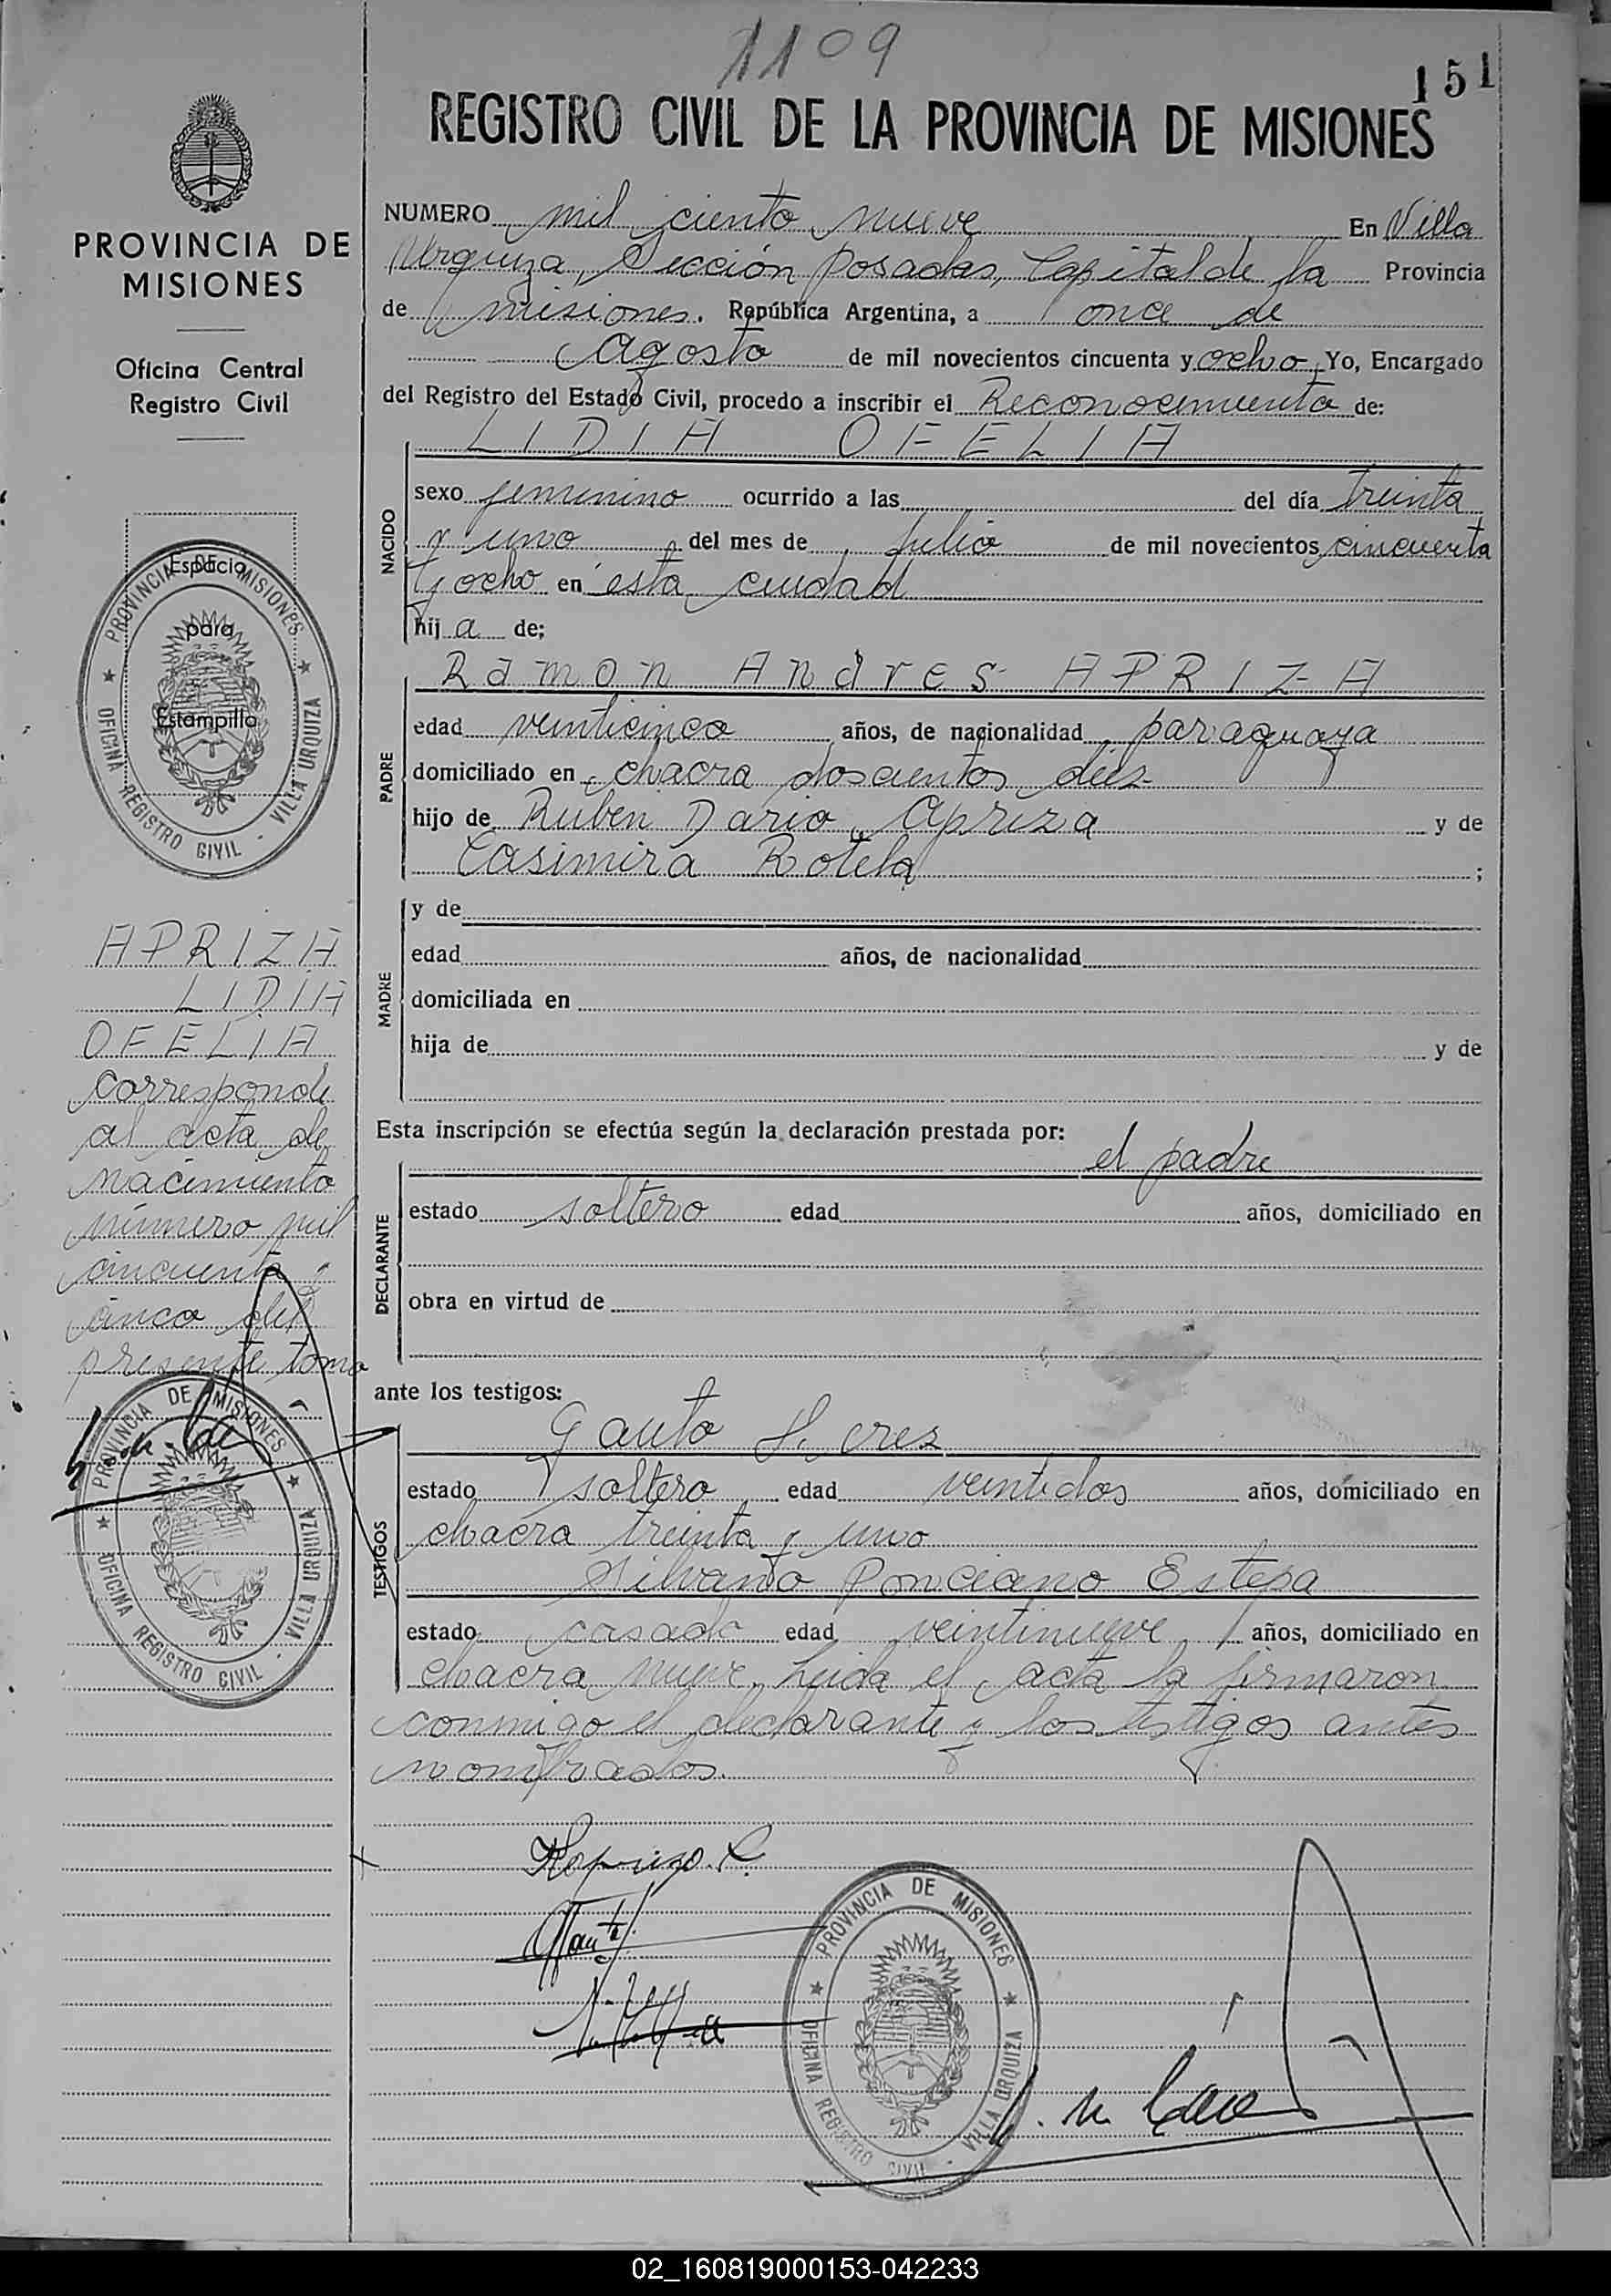 1109
151
REGISTRO CIVIL DE LA PROVINCIA DE MISIONES
PROVINCIA DE
MISIONES
Oficina Central
Registro Civil
Espacio
para
Estampilla
PROVINCIA DE MISIONES
OFICINA REGISTRO CIVIL - VILLA URQUIZA
APRIZA
LIDIA
OFELIA
corresponde
al acta de
nacimiento
número mil
cincuenta y
cinco del
presente tomo
PROVINCIA DE MISIONES
OFICINA REGISTRO CIVIL - VILLA URQUIZA
NUMERO mil ciento nueve En Villa
Urquiza, Sección Posadas, Capital de la Provincia
de misiones. República Argentina, a once de
Agosto de mil novecientos cincuenta y ocho, Yo, Encargado
del Registro del Estado Civil, procedo a inscribir el Reconocimiento de:
LIDIA OFELIA
NACIDO
sexo femenino ocurrido a las del día treinta
y uno del mes de Julio de mil novecientos cincuenta
y ocho en esta ciudad
hija de;
Ramon Andres APRIZA
PADRE
edad veinticinco años, de nacionalidad paraguaya
domiciliado en chacra doscientos diez
hijo de Ruben Dario Apriza y de
Casimira Rotela ;
MADRE
y de
edad años, de nacionalidad
domiciliada en
hija de y de
Esta inscripción se efectúa según la declaración prestada por:
el padre
DECLARANTE
estado soltero edad años, domiciliado en
obra en virtud de
ante los testigos:
Gauto
TESTIGOS
estado soltero edad veintidos años, domiciliado en
chacra treinta y uno
Silvano Ponciano Estepa
estado casado edad veintinueve años, domiciliado en
chacra nueve. Leida el acta la firmaron
conmigo el declarante y los testigos antes
nombrados.
PROVINCIA DE MISIONES
OFICINA REGISTRO CIVIL - VILLA URQUIZA
02_160819000153-042233